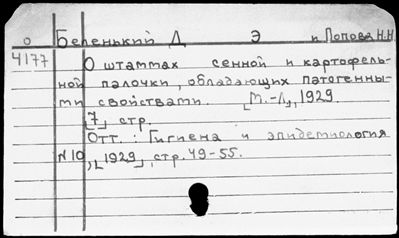 О Беленький Д Э и Попова Н.Н
4177 О штаммах сенной и картофель-
ной палочки, обладающих патогенны-
ми свойствами. [М.-Л], 1929.
[7] стр.
Отт.: Гигиена и эпидемиология
N 10, [1929], стр. 49-55.